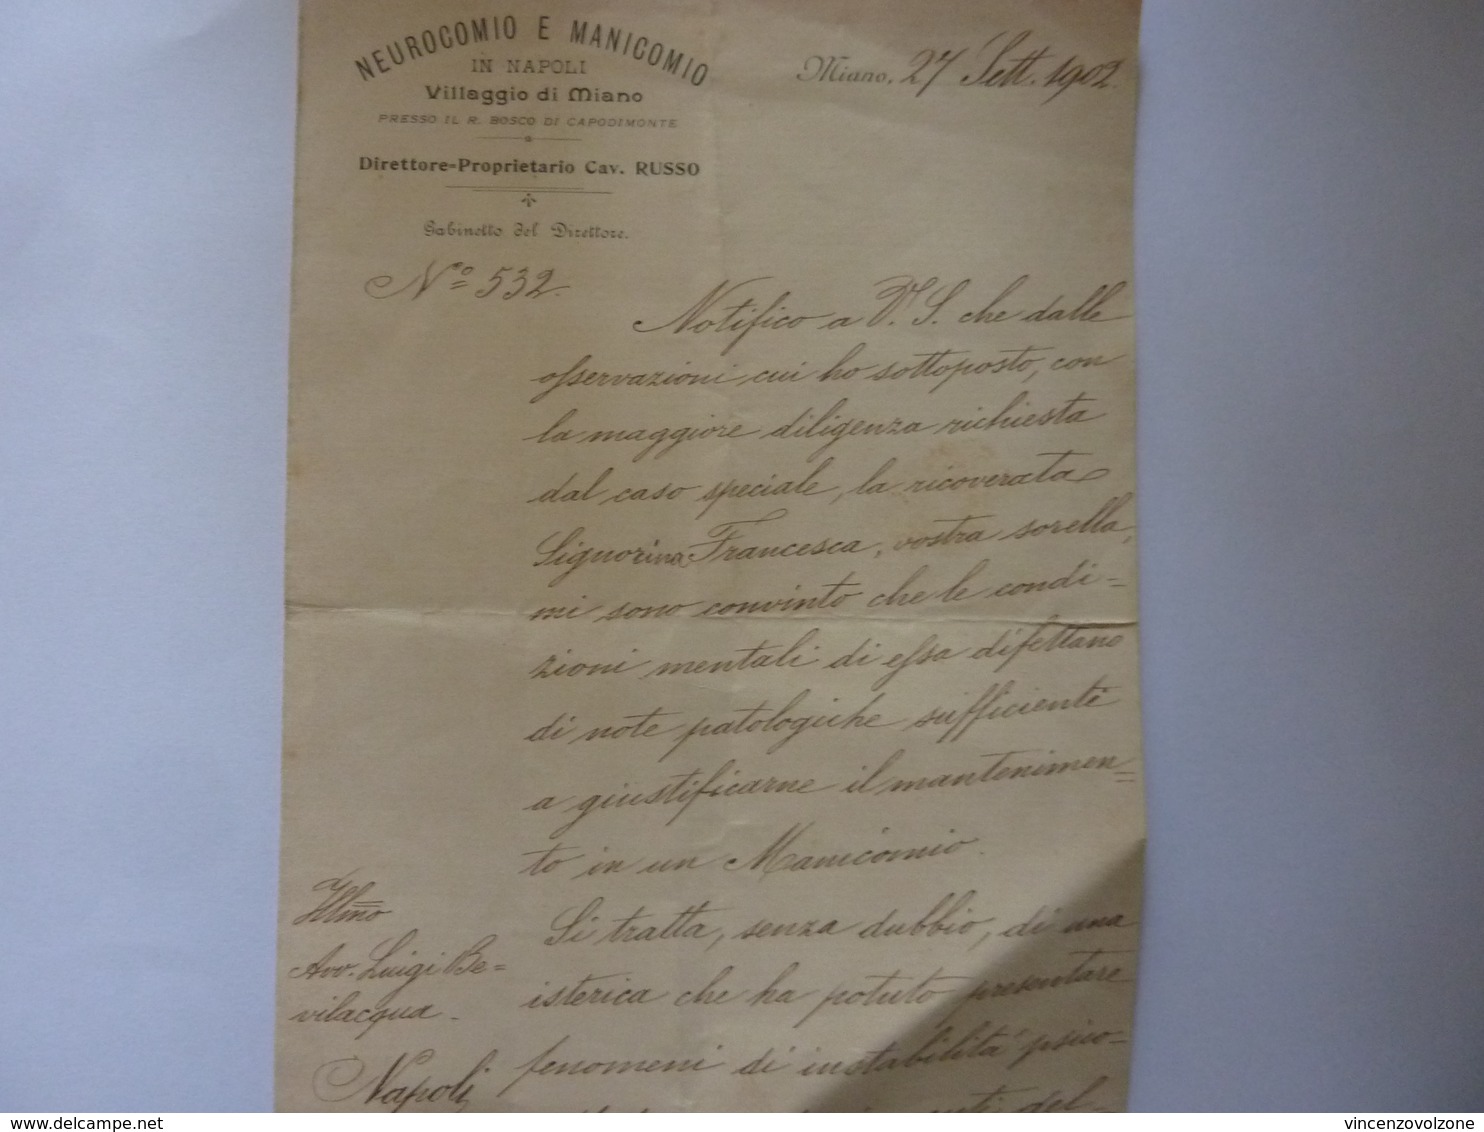 NEUROCOMIO E MANICOMIO
IN NAPOLI
Villaggio di Miano
PRESSO IL R. BOSCO DI CAPODIMONTE
Direttore-Proprietario Cav. RUSSO
Gabinetto del Direttore.
Miano, 27 Sett. 1902.
N.° 532.
Notifico a V. S. che dalle
osservazioni cui ho sottoposto, con
la maggiore diligenza richiesta
dal caso speciale, la ricoverata
Signorina Francesca, vostra sorella,
mi sono convinto che le condi=
zioni mentali di essa difettano
di note patologiche sufficienti
a giustificarne il mantenimen=
to in un Manicomio.
Si tratta, senza dubbio, di una
isterica che ha potuto presentare
fenomeni di instabilità psico-
del-
Illmo
Avv. Luigi Be=
vilacqua -
Napoli
delcampe.net
vincenzovolzone